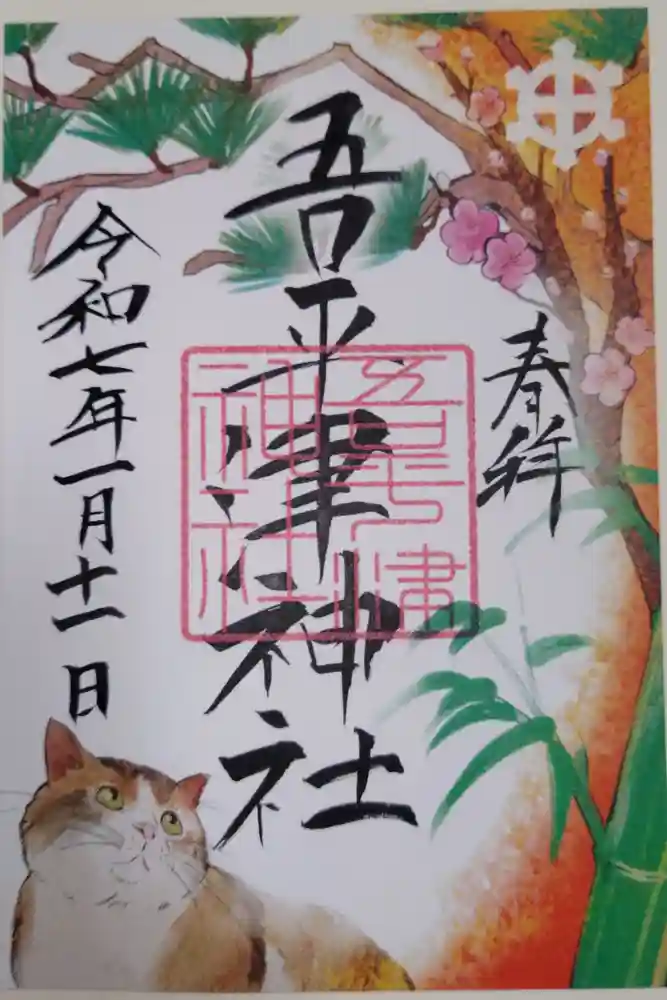 奉拝
吾平津神社
令和七年一月十一日
吾平津
神社